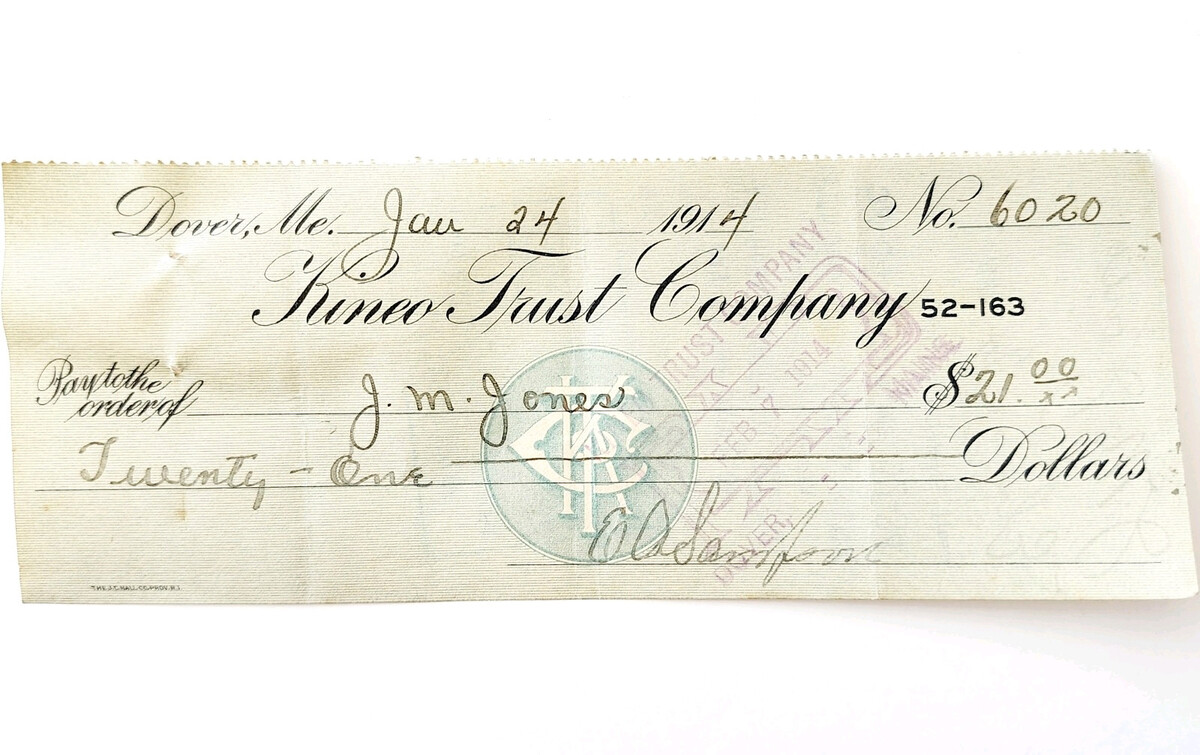 Dover, Me. Jan 24 1914 No. 6020
Kineo Trust Company 52-163
Pay to the
order of J. M. Jones $21.00/xx
Twenty-One Dollars
TRUST COMPANY
FEB 7 1914
DOVER, MAINE
KTC
THE J.C. HALL CO. PROV. R.I.